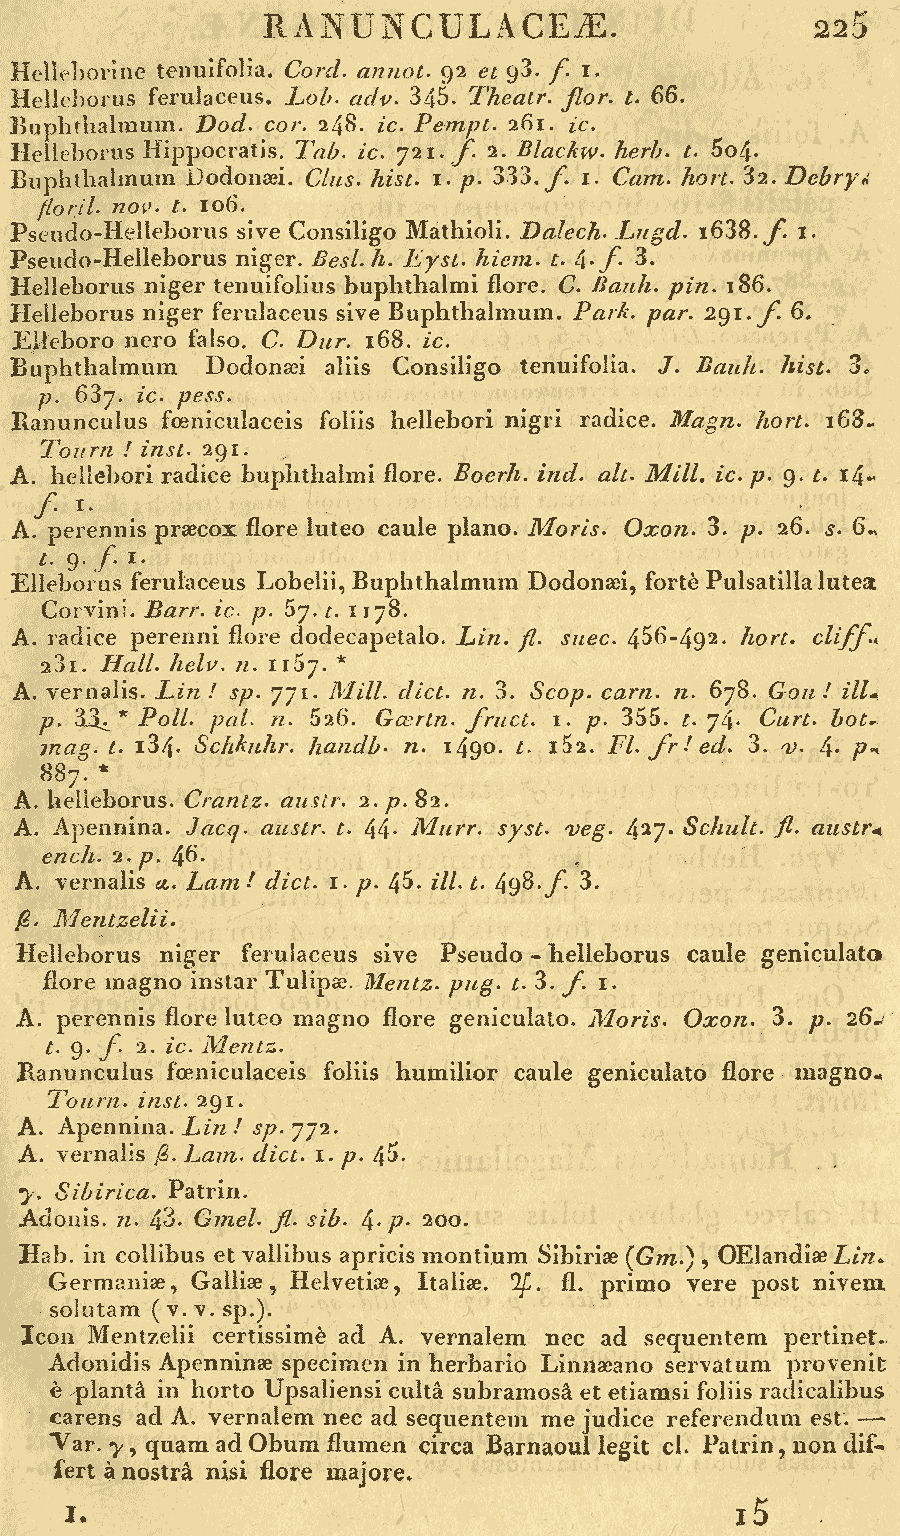 RANUNCULACEÆ. 225
Helleborine tenuifolia. Cord. annot. 92 et 93. f. 1.
Helleborus ferulaceus. Lob. adv. 345. Theatr. flor. t. 66.
Buphthalmum. Dod. cor. 248. ic. Pempt. 261. ic.
Helleborus Hippocratis. Tab. ic. 721. f. 2. Blackw. herb. t. 504.
Buphthalmum Dodonæi. Clus. hist. 1. p. 333. f. 1. Cam. hort. 32. Debry.
floril. nov. t. 106.
Pseudo-Helleborus sive Consiligo Mathioli. Dalech. Lugd. 1638. f. 1.
Pseudo-Helleborus niger. Besl. h. Eyst. hiem. t. 4. f. 3.
Helleborus niger tenuifolius buphthalmi flore. C. Bauh. pin. 186.
Helleborus niger ferulaceus sive Buphthalmum. Park. par. 291. f. 6.
Elleboro nero falso. C. Dur. 168. ic.
Buphthalmum Dodonæi aliis Consiligo tenuifolia. J. Bauh. hist. 3.
p. 637. ic. pess.
Ranunculus fœniculaceis foliis hellebori nigri radice. Magn. hort. 168.
Tourn ! inst. 291.
A. hellebori radice buphthalmi flore. Boerh. ind. alt. Mill. ic. p. 9. t. 14.
f. 1.
A. perennis præcox flore luteo caule plano. Moris. Oxon. 3. p. 26. s. 6.
t. 9. f. 1.
Elleborus ferulaceus Lobelii, Buphthalmum Dodonæi, fortè Pulsatilla lutea
Corvini. Barr. ic. p. 57. t. 1178.
A. radice perenni flore dodecapetalo. Lin. fl. suec. 456-492. hort. cliff.
231. Hall. helv. n. 1157. *
A. vernalis. Lin ! sp. 771. Mill. dict. n. 3. Scop. carn. n. 678. Gou ! ill.
p. 33. * Poll. pal. n. 526. Gœrtn. fruct. 1. p. 355. t. 74. Curt. bot.
mag. t. 134. Schkuhr. handb. n. 1490. t. 152. Fl. fr ! ed. 3. v. 4. p.
887. *
A. helleborus. Crantz. austr. 2. p. 82.
A. Apennina. Jacq. austr. t. 44. Murr. syst. veg. 427. Schult. fl. austr.
ench. 2. p. 46.
A. vernalis α. Lam ! dict. 1. p. 45. ill. t. 498. f. 3.
β. Mentzelii.
Helleborus niger ferulaceus sive Pseudo-helleborus caule geniculato
flore magno instar Tulipæ. Mentz. pug. t. 3. f. 1.
A. perennis flore luteo magno flore geniculato. Moris. Oxon. 3. p. 26.
t. 9. f. 2. ic. Mentz.
Ranunculus fœniculaceis foliis humilior caule geniculato flore magno.
Tourn. inst. 291.
A. Apennina. Lin ! sp. 772.
A. vernalis β. Lam. dict. 1. p. 45.
γ. Sibirica. Patrin.
Adonis. n. 43. Gmel. fl. sib. 4. p. 200.
Hab. in collibus et vallibus apricis montium Sibiriæ (Gm.), OElandiæ Lin.
Germaniæ, Galliæ, Helvetiæ, Italiæ. ♃. fl. primo vere post nivem
solutam (v. v. sp.).
Icon Mentzelii certissimè ad A. vernalem nec ad sequentem pertinet.
Adonidis Apenninæ specimen in herbario Linnæano servatum provenit
è plantâ in horto Upsaliensi cultâ subramosâ et etiamsi foliis radicalibus
carens ad A. vernalem nec ad sequentem me judice referendum est. —
Var. γ, quam ad Obum flumen circa Barnaoul legit cl. Patrin, non dif-
fert à nostrâ nisi flore majore.
1. 15